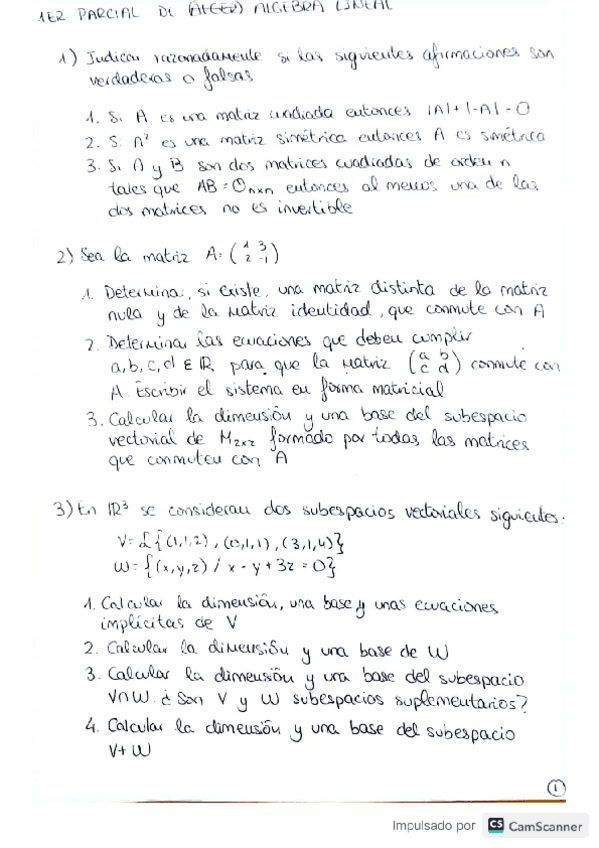 1ER PARCIAL DE (ALGEB) ALGEBRA LINEAL
1) Indicar razonadamente si las siguientes afirmaciones son
verdaderas o falsas
1. Si A es una matriz cuadrada entonces |A|+|-A|=0
2. Si A² es una matriz simétrica entonces A es simétrica
3. Si A y B son dos matrices cuadradas de orden n
tales que AB=0nxn entonces al menos una de las
dos matrices no es invertible
2) Sea la matriz A=(1 3
2 -1)
1. Determina, si existe, una matriz distinta de la matriz
nula y de la matriz identidad, que conmute con A
2. Determinar las ecuaciones que deben cumplir
a,b,c,d ∈ IR para que la matriz (a b
c d) conmute con
A. Escribir el sistema en forma matricial
3. Calcular la dimensión y una base del subespacio
vectorial de M2x2 formado por todas las matrices
que conmuten con A
3) En IR³ se consideran dos subespacios vectoriales siguientes:
V=L{(1,1,2),(0,1,1),(3,1,4)}
W={(x,y,z) / x-y+3z=0}
1. Calcular la dimensión, una base y unas ecuaciones
implícitas de V
2. Calcular la dimensión y una base de W
3. Calcular la dimensión y una base del subespacio
V∩W. ¿Son V y W subespacios suplementarios?
4. Calcular la dimensión y una base del subespacio
V+W
1
Impulsado por CS CamScanner